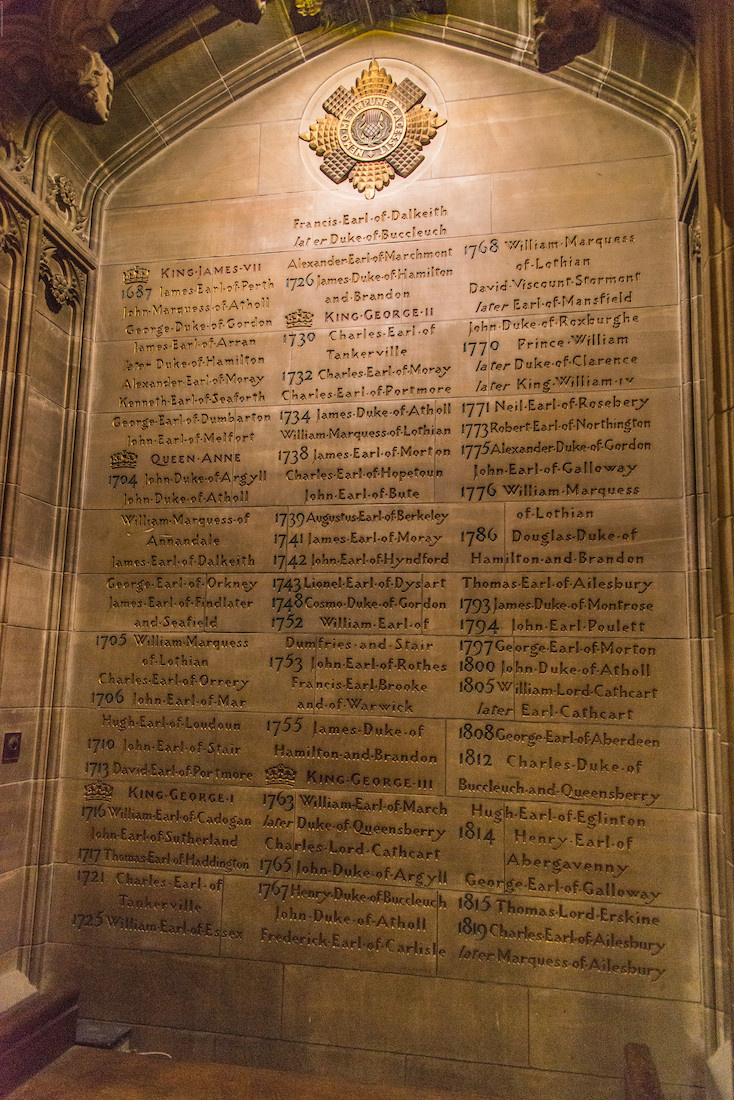 NEMO·ME·IMPUNE·LACESSIT
KING·JAMES·VII
1687 James·Earl·of·Perth
John·Marquess·of·Atholl
George·Duke·of·Gordon
James·Earl·of·Arran
later Duke·of·Hamilton
Alexander·Earl·of·Moray
Kenneth·Earl·of·Seaforth
George·Earl·of·Dumbarton
John·Earl·of·Melfort
QUEEN·ANNE
1704 John·Duke·of·Argyll
John·Duke·of·Atholl
William·Marquess·of
Annandale
James·Earl·of·Dalkeith
George·Earl·of·Orkney
James·Earl·of·Findlater
and·Seafield
1705 William·Marquess
of·Lothian
Charles·Earl·of·Orrery
1706 John·Earl·of·Mar
Hugh·Earl·of·Loudoun
1710 John·Earl·of·Stair
1713 David·Earl·of·Portmore
KING·GEORGE·I
1716 William·Earl·of·Cadogan
John·Earl·of·Sutherland
1717 Thomas·Earl·of·Haddington
1721 Charles·Earl·of
Tankerville
1725 William·Earl·of·Essex
Francis·Earl·of·Dalkeith
later Duke·of·Buccleuch
Alexander·Earl·of·Marchmont
1726 James·Duke·of·Hamilton
and·Brandon
KING·GEORGE·II
1730 Charles·Earl·of
Tankerville
1732 Charles·Earl·of·Moray
Charles·Earl·of·Portmore
1734 James·Duke·of·Atholl
William·Marquess·of·Lothian
1738 James·Earl·of·Morton
Charles·Earl·of·Hopetoun
John·Earl·of·Bute
1739 Augustus·Earl·of·Berkeley
1741 James·Earl·of·Moray
1742 John·Earl·of·Hyndford
1743 Lionel·Earl·of·Dysart
1748 Cosmo·Duke·of·Gordon
1752 William·Earl·of
Dumfries·and·Stair
1753 John·Earl·of·Rothes
Francis·Earl·Brooke
and·of·Warwick
1755 James·Duke·of
Hamilton·and·Brandon
KING·GEORGE·III
1763 William·Earl·of·March
later Duke·of·Queensberry
Charles·Lord·Cathcart
1765 John·Duke·of·Argyll
1767 Henry·Duke·of·Buccleuch
John·Duke·of·Atholl
Frederick·Earl·of·Carlisle
1768 William·Marquess
of·Lothian
David·Viscount·Stormont
later Earl·of·Mansfield
John·Duke·of·Roxburghe
1770 Prince·William
later Duke·of·Clarence
later King·William·IV
1771 Neil·Earl·of·Rosebery
1773 Robert·Earl·of·Northington
1775 Alexander·Duke·of·Gordon
John·Earl·of·Galloway
1776 William·Marquess
of·Lothian
1786 Douglas·Duke·of
Hamilton·and·Brandon
Thomas·Earl·of·Ailesbury
1793 James·Duke·of·Montrose
1794 John·Earl·Poulett
1797 George·Earl·of·Morton
1800 John·Duke·of·Atholl
1805 William·Lord·Cathcart
later Earl·Cathcart
1808 George·Earl·of·Aberdeen
1812 Charles·Duke·of
Buccleuch·and·Queensberry
Hugh·Earl·of·Eglinton
1814 Henry·Earl·of
Abergavenny
George·Earl·of·Galloway
1815 Thomas·Lord·Erskine
1819 Charles·Earl·of·Ailesbury
later Marquess·of·Ailesbury